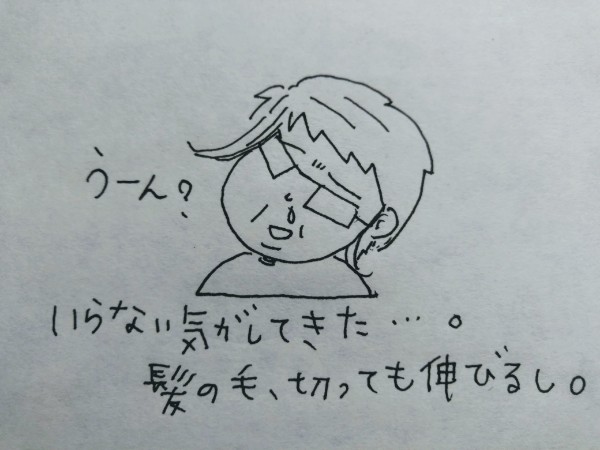 うーん?
いらない気がしてきた…。
髪の毛、切っても伸びるし。